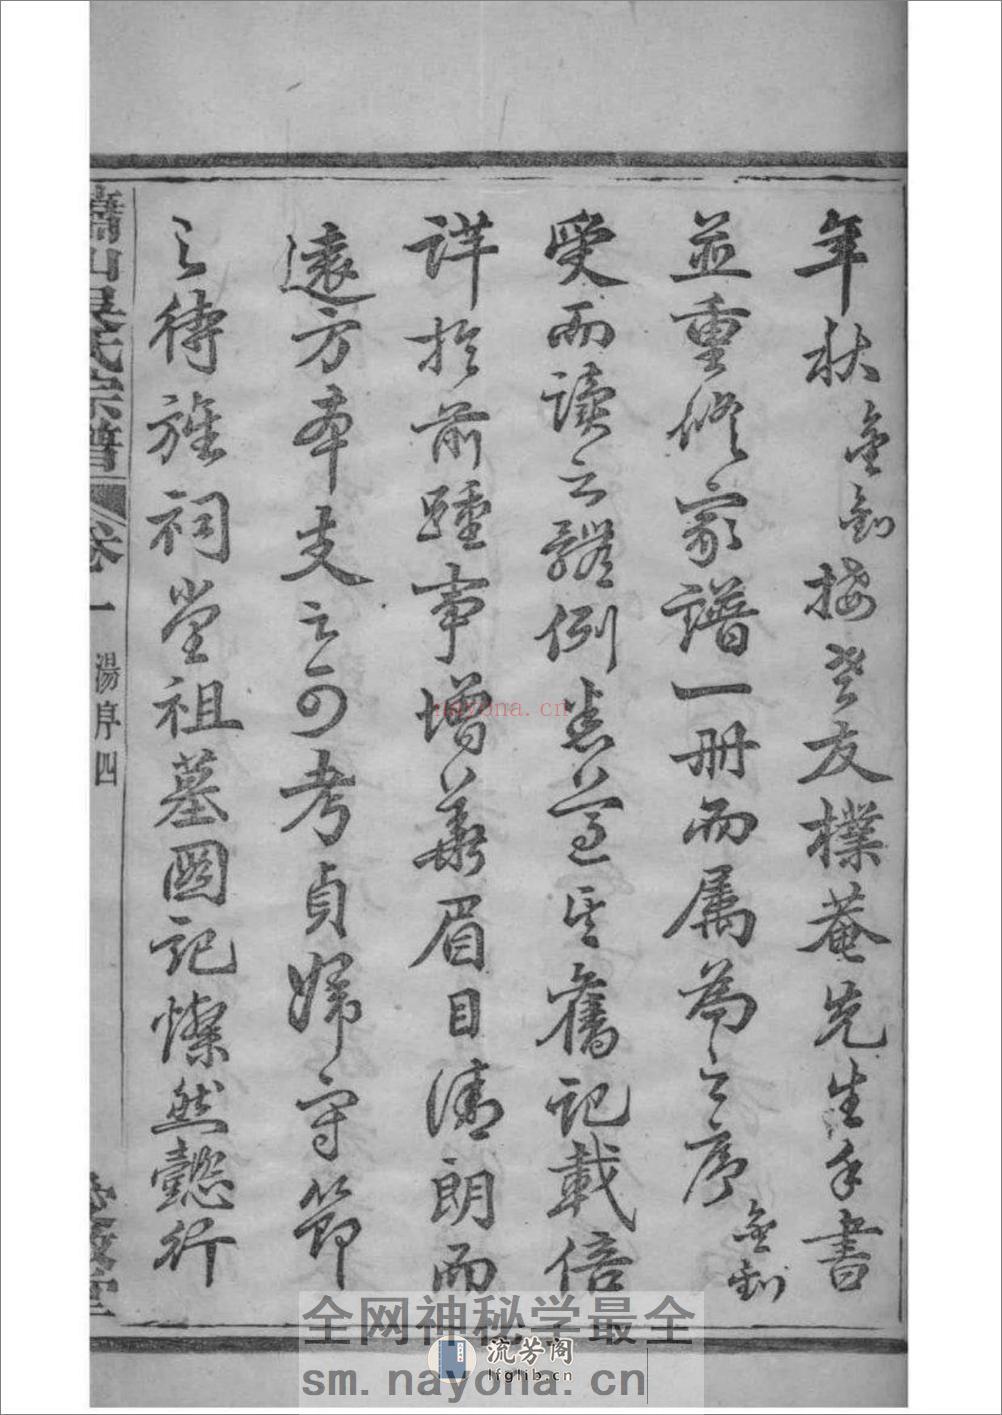 年秋金釗接老友樸菴先生手書
並重修家譜一册而属為之序金釗
受而读之體例悉遵其舊記載倍
详於前踵事增華眉目清朗而
遠方本支之可考貞婦守節
之待旌祠堂祖墓圖記燦然懿行
蕭山吳氏宗譜 卷一 湯序四
nayona.cn
全网神秘学最全
流芳阁
lfglib.cn
sm.nayona.cn